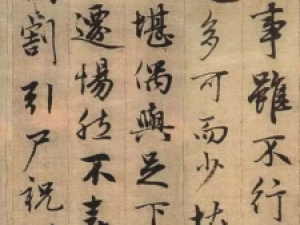 事雖不行
多可而少怪
堪偶與足下
遷惕然不喜
割引尸祝